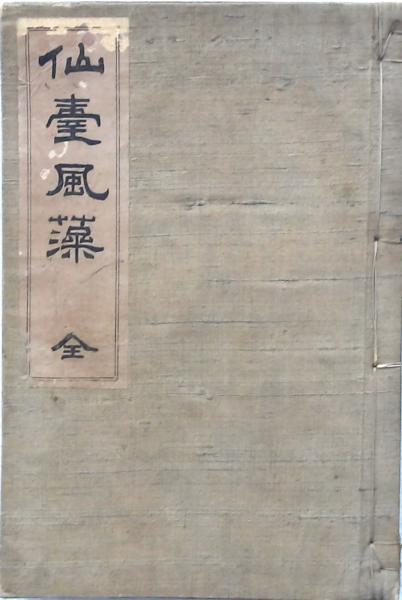 仙臺風藻 全